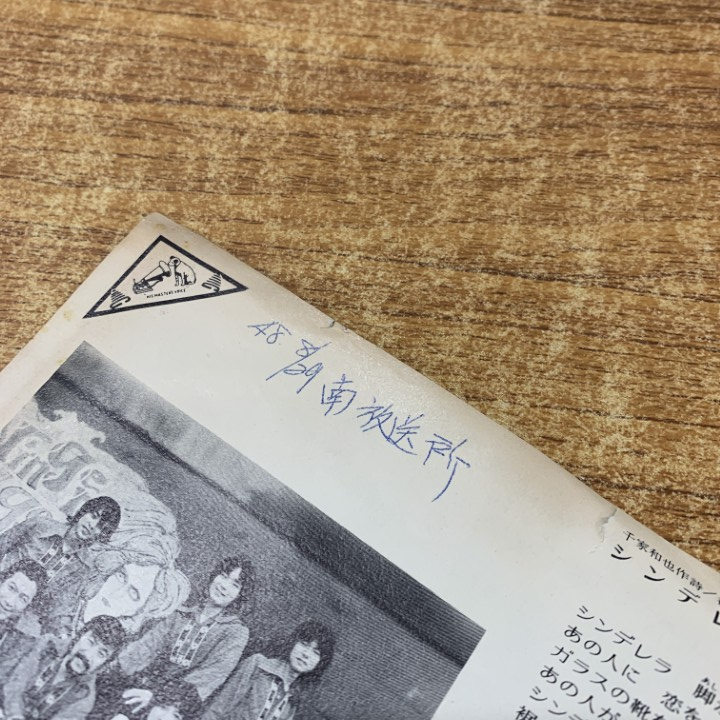 48 8/29 南放送所
千家和也作詩/
シンデレ
シンデレラ
あの人に 恋を
ガラスの靴
あの人が
シンデ